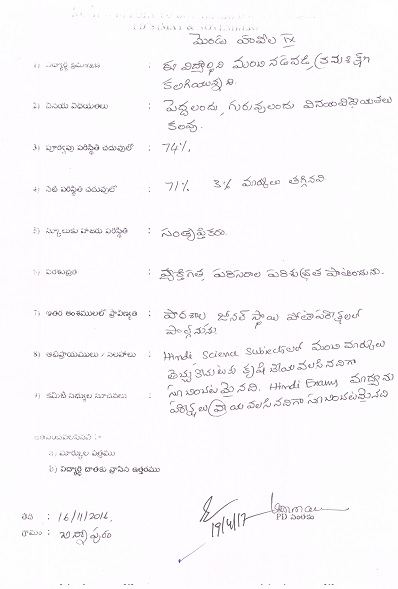 మెండు హంపల IX
1) విద్యార్థి క్రమశిక్షణ : ఈ విద్యార్థిని మంచి నడవడి, క్రమశిక్షణ
కలిగియున్నది.
2) వినయ విధేయతలు : పెద్దలందు, గురువులందు వినయవిధేయతలు
కలవు.
3) పూర్వపు పరిస్థితి చదువులో : 74%
4) నేటి పరిస్థితి చదువులో : 71% 3% మార్కులు తగ్గినవి
5) స్కూలుకు హాజరు పరిస్థితి : సంతృప్తికరం.
6) పరిశుభ్రత : వ్యక్తిగత, పరిసరాల పరిశుభ్రత పాటించును.
7) ఇతర అంశములలో ప్రావీణ్యత : పాఠశాల జోనల్ స్థాయి పోటీపరీక్షలలో
పాల్గొనును.
8) అభిప్రాయములు / సలహాలు : Hindi Science Subjectsలలో మంచి మార్కులు
తెచ్చుకొనుటకు కృషి చేయవలసినదిగా
9) కమిటీ సభ్యుల సూచనలు : సూచించటమైనది. Hindi Exams
పరీక్షలు వ్రాయవలసినదిగా సూచించటమైనది
జతచేయవలసినవి :-
a) మార్కుల పత్రము
b) విద్యార్థి దాతకు వ్రాసిన ఉత్తరము
తేది : 16/11/2016.
గ్రామం :
19/4/17
PD సంతకం